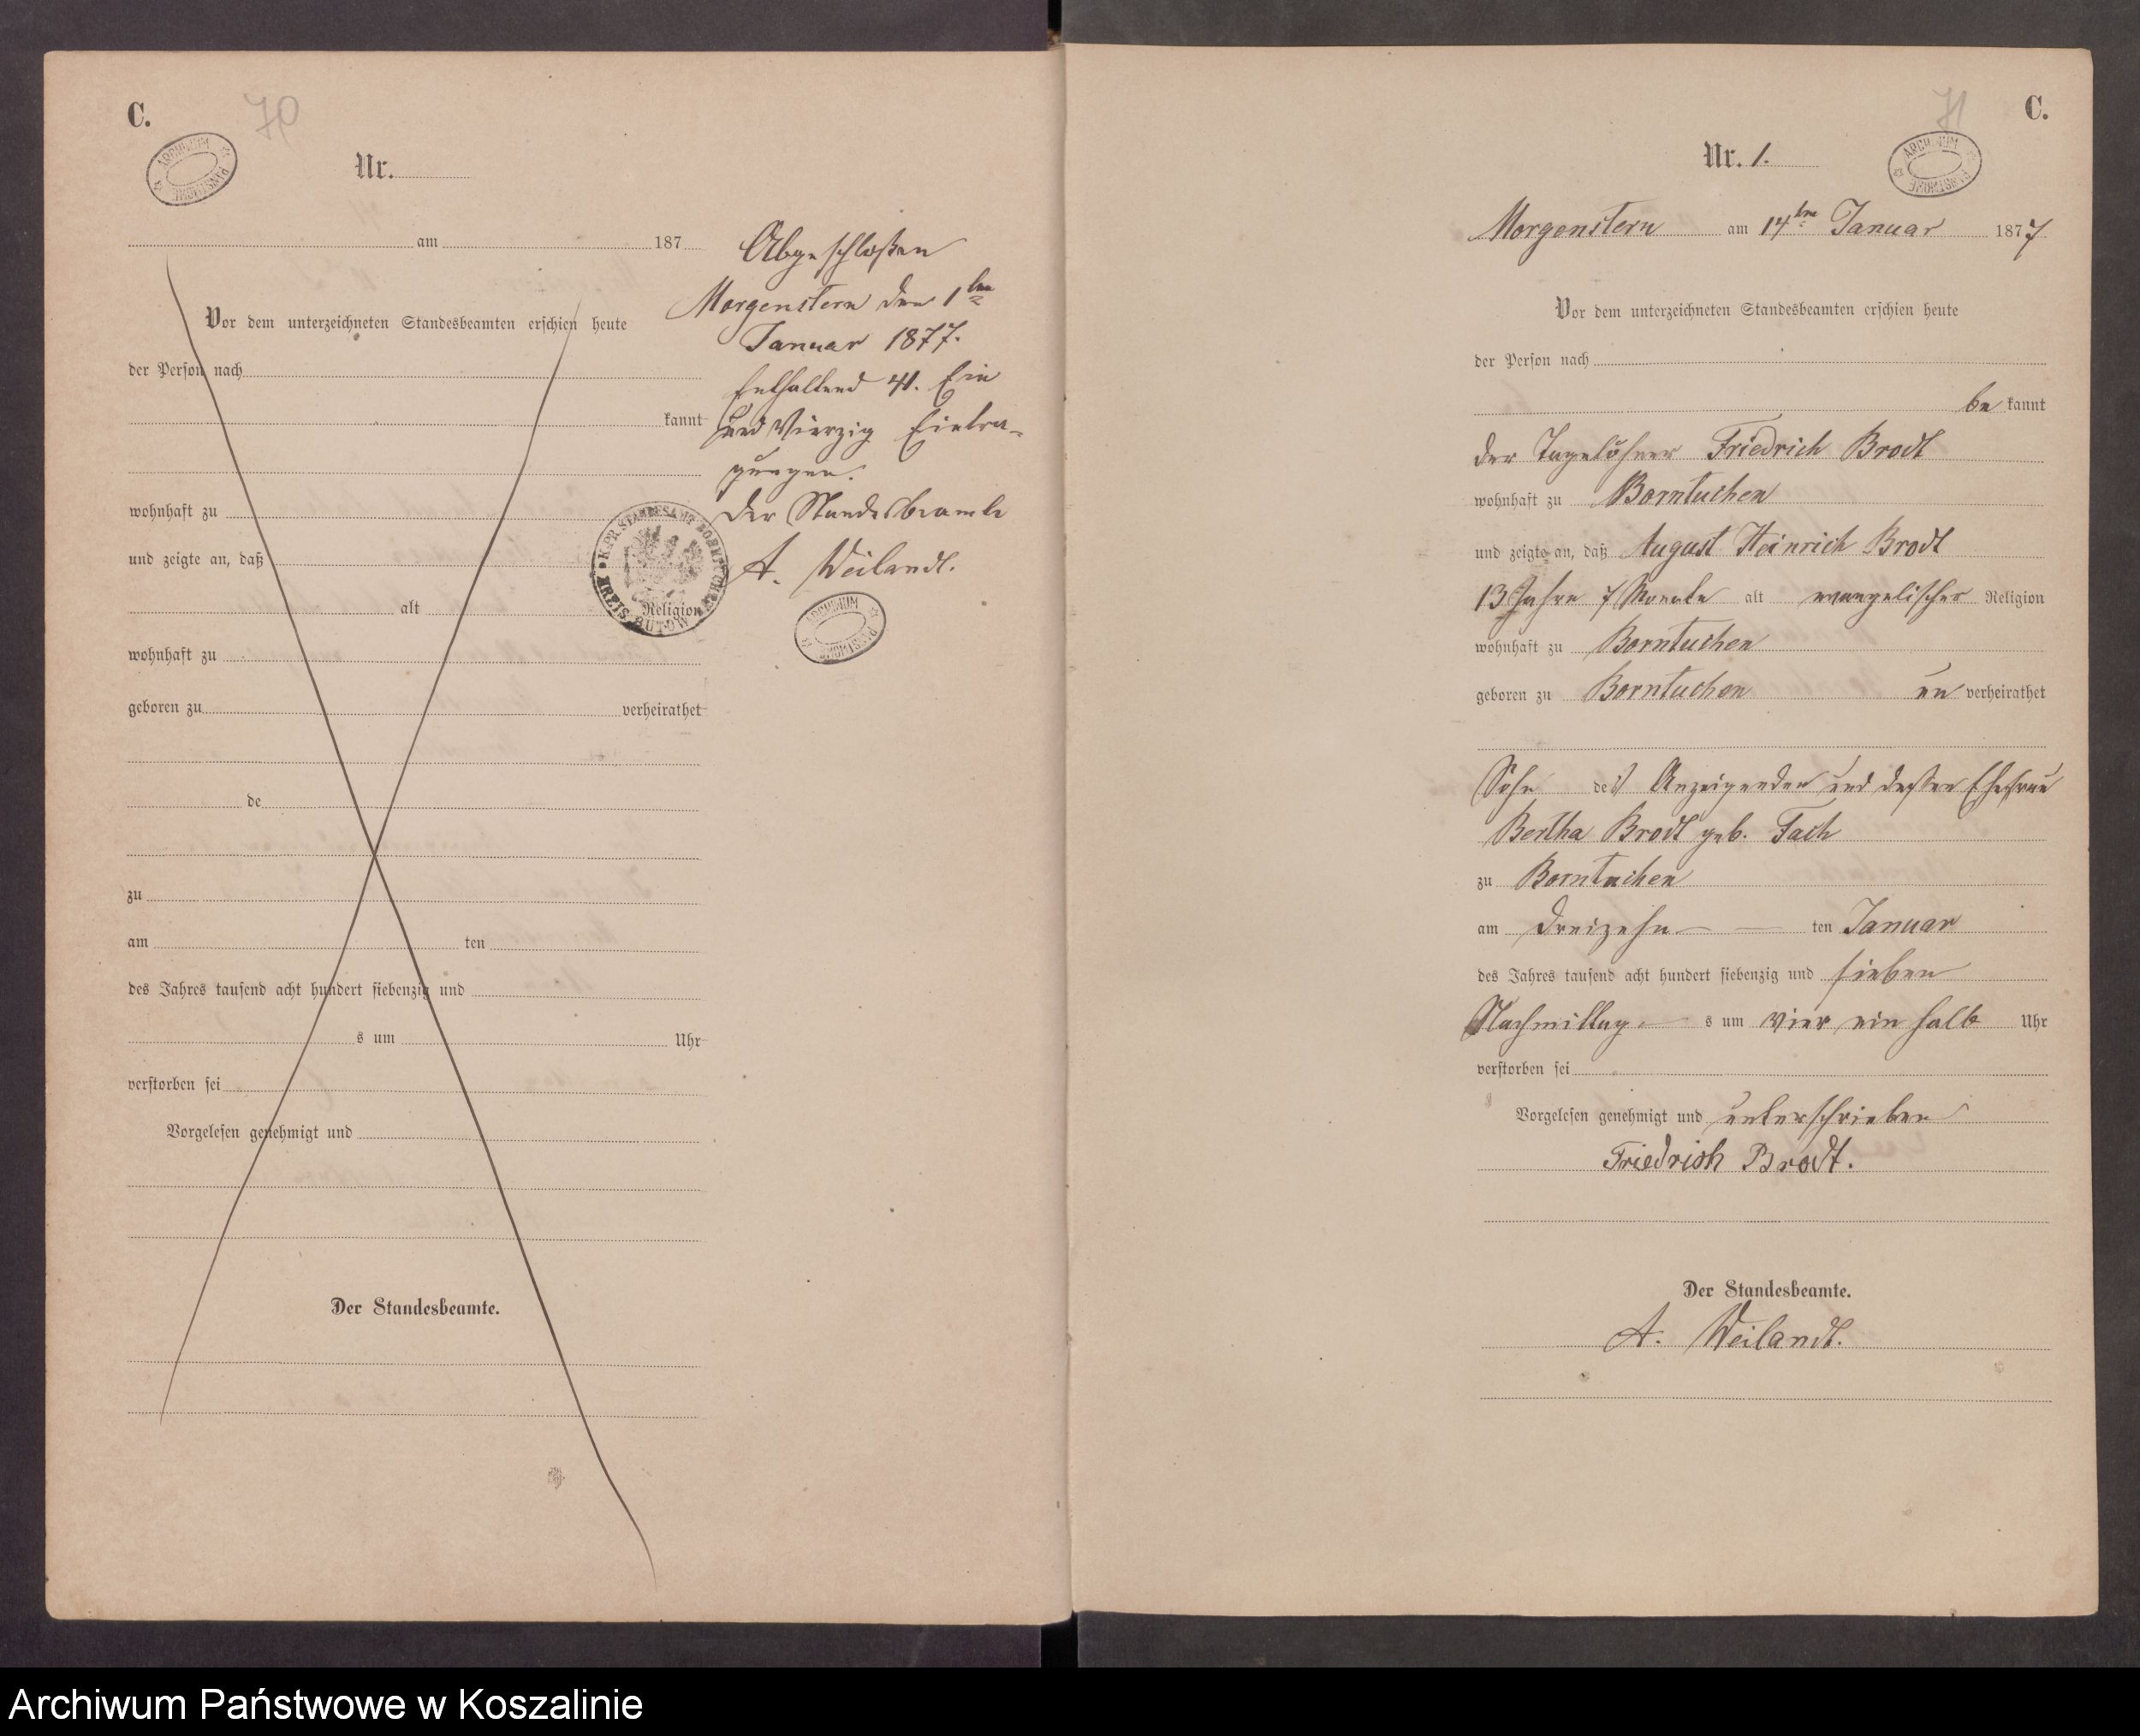 C.
70
ARCHIWUM PAŃSTWOWE
Nr.
am 187
Vor dem unterzeichneten Standesbeamten erschien heute
der Person nach
kannt
wohnhaft zu
und zeigte an, daß
alt Religion
wohnhaft zu
geboren zu verheirathet
de
zu
am ten
des Jahres tausend acht hundert siebenzig und
s um Uhr
verstorben sei
Vorgelesen genehmigt und
Der Standesbeamte.
Abgeschloßen
Morgenstern den 1ten
Januar 1877.
Enthaltend 41. Ein
und Vierzig Eintra-
gungen.
Der Standesbeamte
A. Weilandt.
K. PR. STANDESAMT BORNTUCHEN
KREIS BÜTOW
ARCHIWUM PAŃSTWOWE
71
C.
Nr. 1.
ARCHIWUM PAŃSTWOWE
Morgenstern am 14ten Januar 1877
Vor dem unterzeichneten Standesbeamten erschien heute
der Person nach
be kannt
der Tagelöhner Friedrich Brodt
wohnhaft zu Borntuchen
und zeigte an, daß August Heinrich Brodt
13 Jahre 7 Monate alt evangelischer Religion
wohnhaft zu Borntuchen
geboren zu Borntuchen un verheirathet
Sohn des Anzeigenden und dessen Ehefrau
Bertha Brodt geb. Fach
zu Borntuchen
am dreizehn ten Januar
des Jahres tausend acht hundert siebenzig und sieben
Nachmittag s um vier ein halb Uhr
verstorben sei
Vorgelesen genehmigt und unterschrieben
Friedrich Brodt.
Der Standesbeamte.
A. Weilandt.
Archiwum Państwowe w Koszalinie